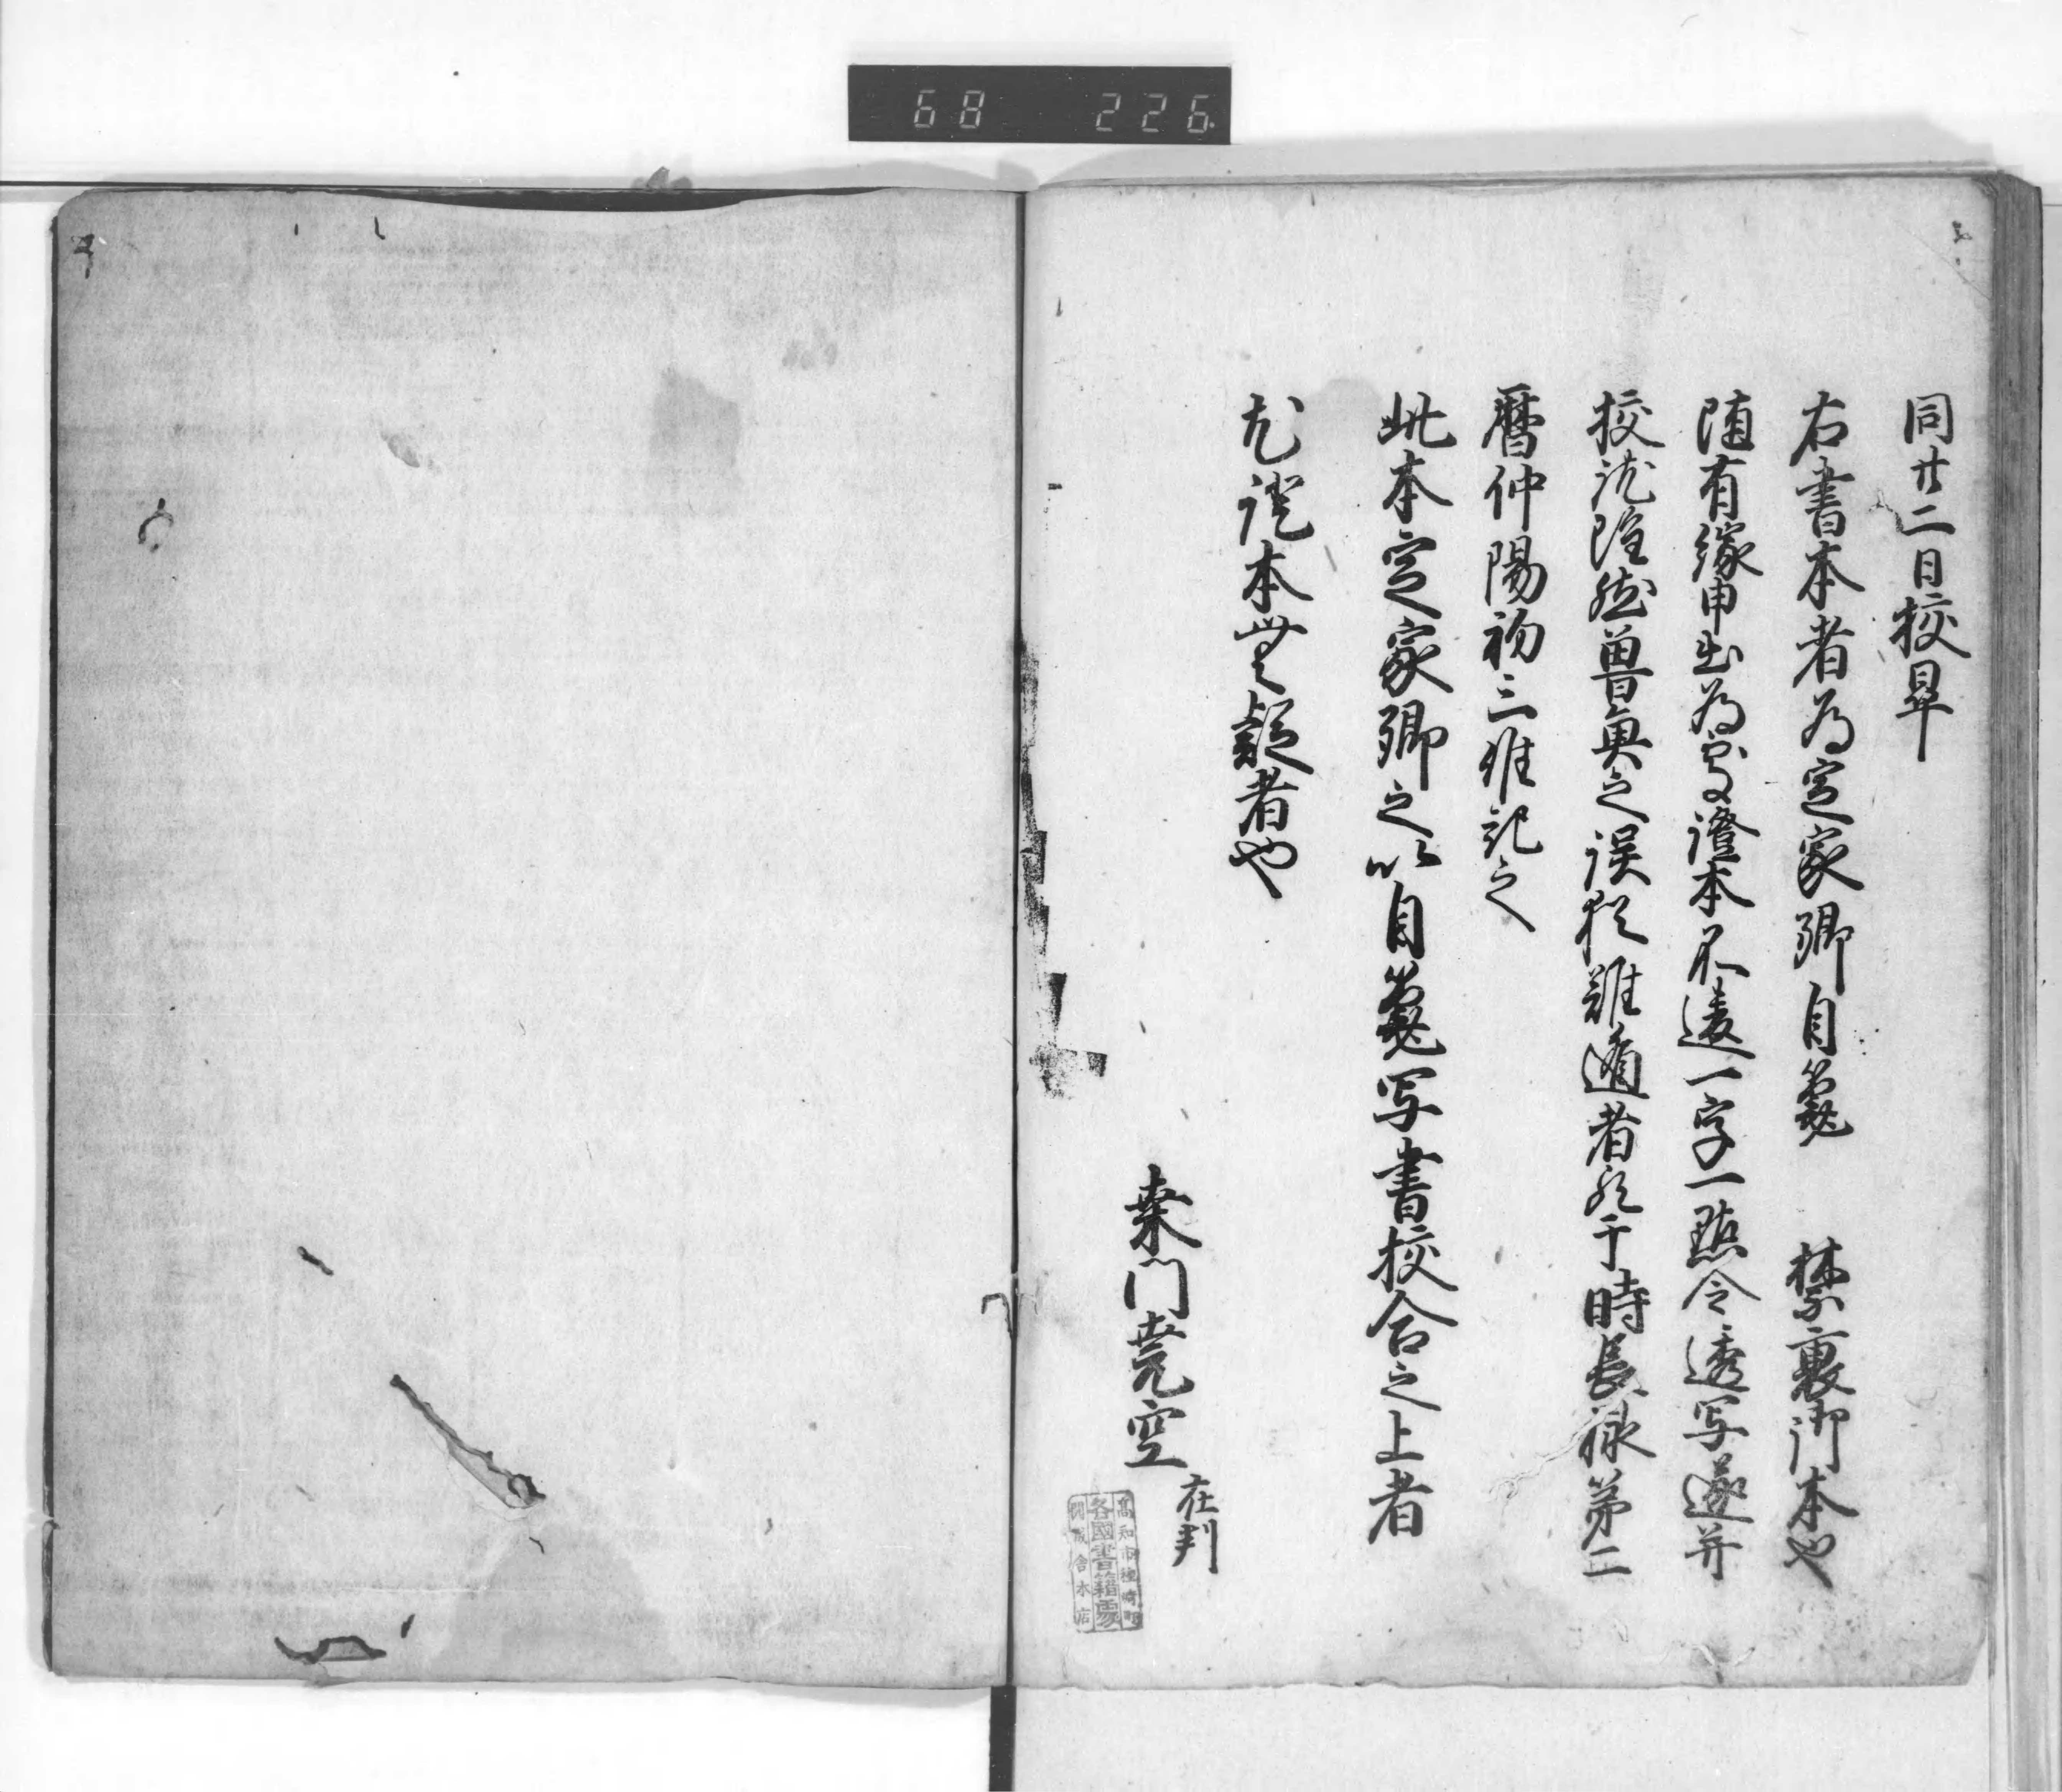 68 226
同廿二日校畢
右書本者為定家卿自筆 禁裏御本也
随有縁申出為家證本不違一字一點令透写遂并
校訖雖然魯魚之誤猶難遁者歟于時長禄第二
暦仲陽初三雅記之
此本定家卿之以自筆写書校合之上者
尤證本無疑者也
桑門堯空
在判
高知市種崎町
各國書籍賣